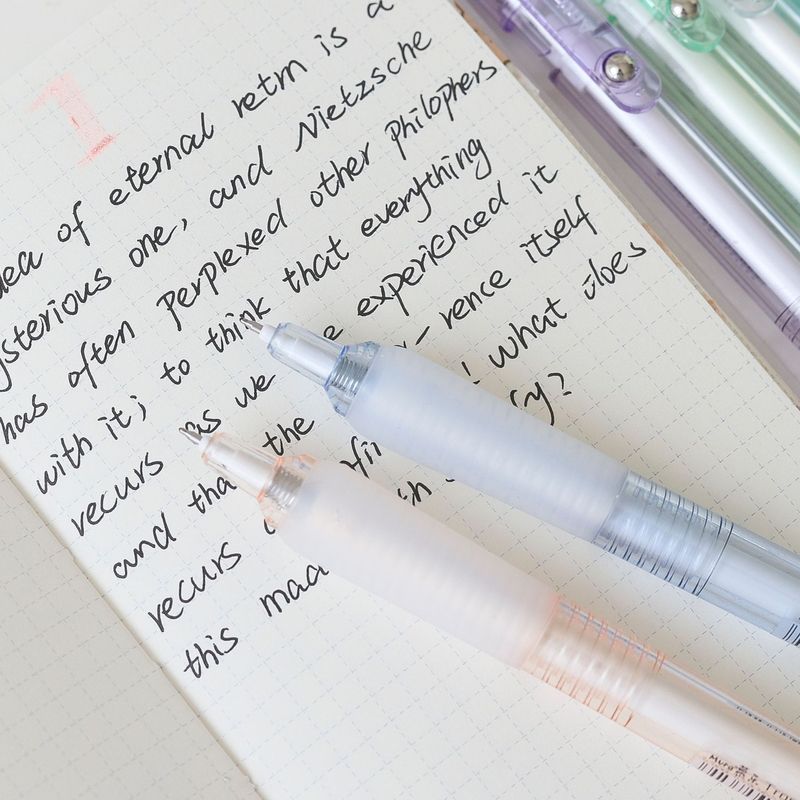 1
idea of eternal retrn is a
ysterious one, and Nietzsche
has often perplexed other philophers
with it; to think that everything
recurs as we experienced it
and that the rence itself
recurs what does
this mad